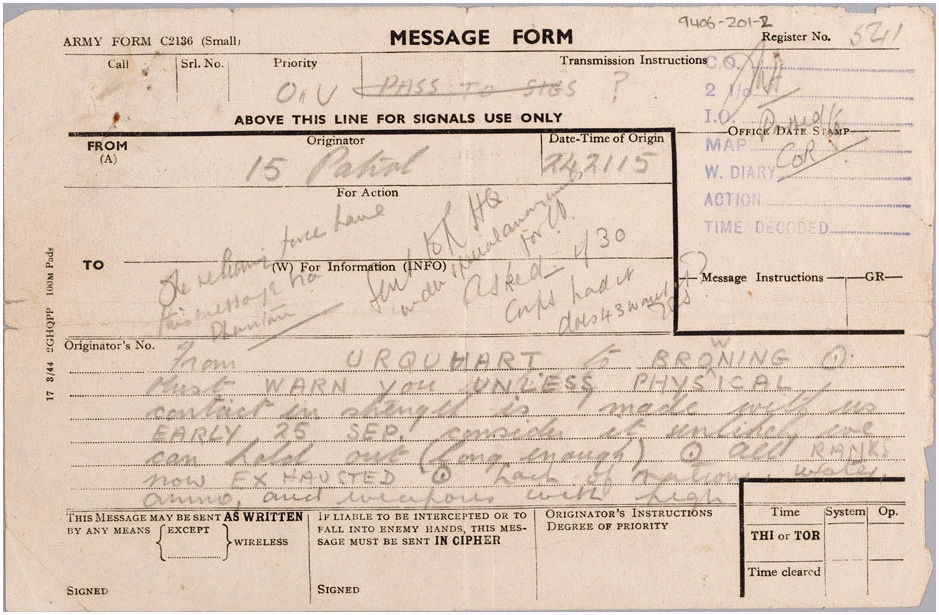 9406-201-2
ARMY FORM C2136 (Small) MESSAGE FORM Register No. 521
Call Srl. No. Priority Transmission Instructions
O.U PASS TO SIGS ?
C.O.
2 I/c
I.O.
ABOVE THIS LINE FOR SIGNALS USE ONLY
OFFICE DATE STAMP
MAP
W. DIARY
ACTION
TIME DECODED
FROM (A) Originator Date-Time of Origin
15 Patrol 242115
For Action
TO
(W) For Information (INFO)
the relieving force have
this message via
Phantom
Sent to R HQ
under
for
Asked 4/30
Corps had it
does 43 want
Message Instructions GR
17 8/44 2GHQPP 100M Pads
Originator's No.
From URQUHART to BROWNING
Must WARN you UNLESS PHYSICAL
contact in strength is made with us
EARLY 25 SEP. consider it unlikely we
can hold out (long enough) All RANKS
now EXHAUSTED Lack of rations, water,
ammo, and weapons with high
THIS MESSAGE MAY BE SENT AS WRITTEN
BY ANY MEANS { EXCEPT } WIRELESS
SIGNED
IF LIABLE TO BE INTERCEPTED OR TO
FALL INTO ENEMY HANDS, THIS MES-
SAGE MUST BE SENT IN CIPHER
SIGNED
ORIGINATOR'S INSTRUCTIONS
DEGREE OF PRIORITY
Time System Op.
THI or TOR
Time cleared